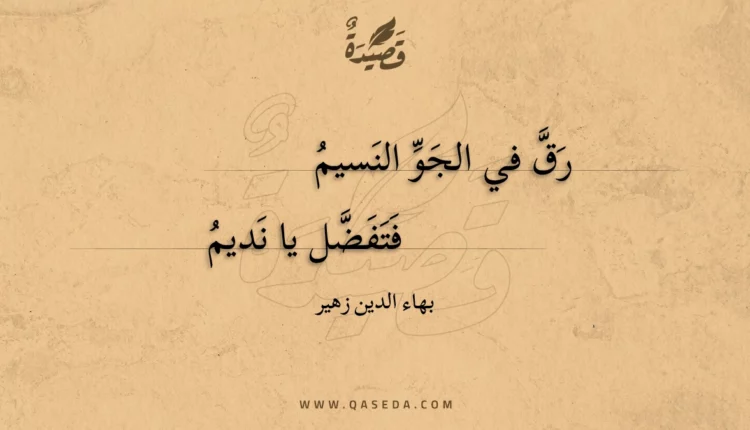 قَصِيْدَةٌ
رَقَّ في الجَوِّ النَسيمُ
فَتَفَضَّل يا نَديمُ
بهاء الدين زهير
WWW.QASEDA.COM